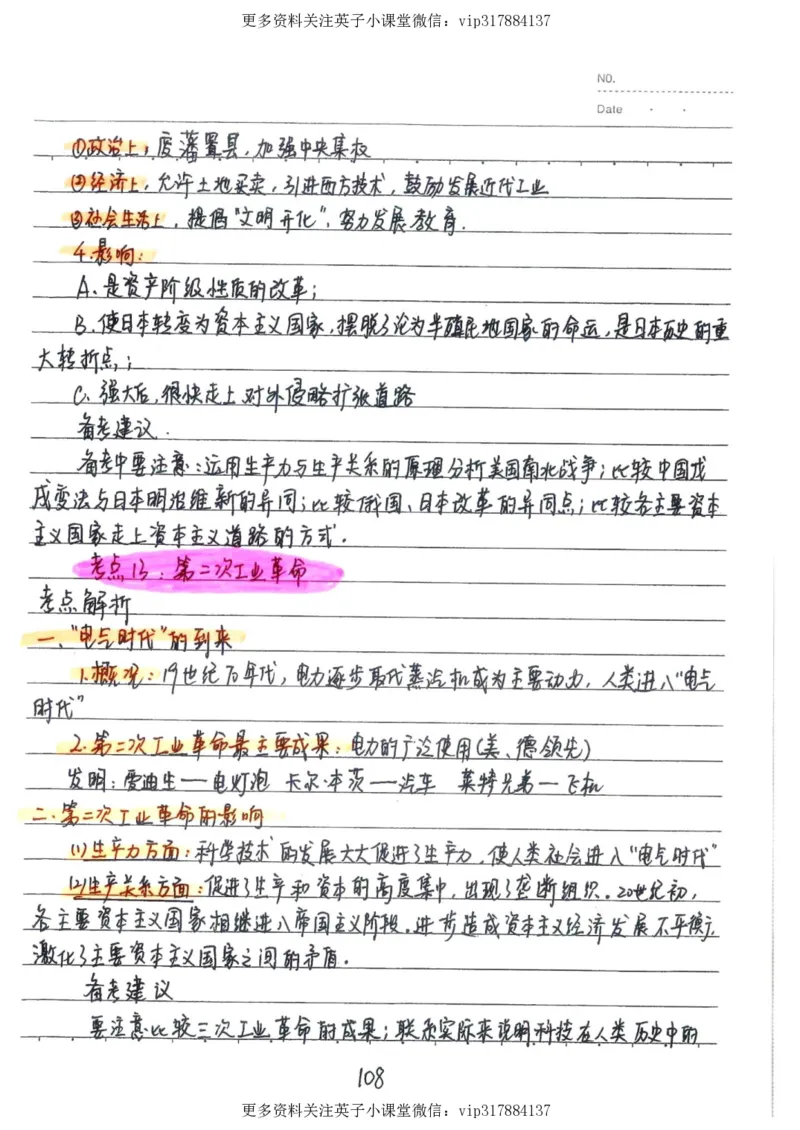 更多资料关注英子小课堂微信：vip317884137
NO.
Date
①政治上，废藩置县，加强中央集权
②经济上，允许土地买卖，引进西方技术，鼓励发展近代工业
③社会生活上，提倡"文明开化"，努力发展教育．
4.影响：
A、是资产阶级性质的改革；
B、使日本转变为资本主义国家，摆脱了沦为半殖民地国家的命运，是日本历史的重
大转折点；
C、强大后，很快走上对外侵略扩张道路
备考建议．
备考中要注意：运用生产力与生产关系的原理分析美国南北战争；比较中国戊
戌变法与日本明治维新的异同；比较俄国、日本改革的异同点；比较各主要资本
主义国家走上资本主义道路的方式．
考点13：第二次工业革命
考点解析
一、"电气时代"的到来
1.概况：19世纪70年代，电力逐步取代蒸汽机成为主要动力，人类进入"电气
时代"
2.第二次工业革命最主要成果：电力的广泛使用(美、德领先)
发明：爱迪生——电灯泡 卡尔·本茨——汽车 莱特兄弟—飞机
二.第二次工业革命的影响
(1)生产力方面：科学技术的发展大大促进了生产力，使人类社会进入"电气时代"
(2)生产关系方面：促进了生产和资本的高度集中，出现了垄断组织。20世纪初，
各主要资本主义国家相继进入帝国主义阶段。进步造成资本主义经济发展不平衡，
激化了主要资本主义国家之间的矛盾．
备考建议
要注意比较三次工业革命的成果；联系实际来说明科技在人类历史中的
108
更多资料关注英子小课堂微信：vip317884137